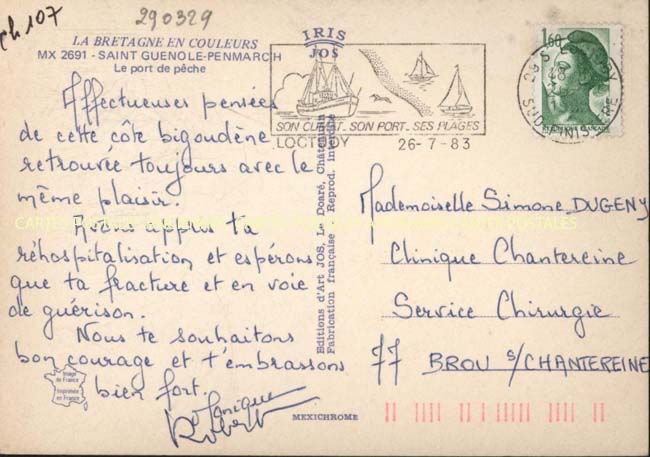 ch 107
290329
LA BRETAGNE EN COULEURS
MX 2691 - SAINT GUENOLE-PENMARCH
Le port de pêche
IRIS
JOS
SON CLIMAT. SON PORT. SES PLAGES
LOCTUDY 26-7-83
1,60
RÉPUBLIQUE FRANÇAISE
Affectueuses pensées
de cette côte bigoudène
retrouvée toujours avec le
même plaisir.
Avons appris ta
réhospitalisation et espérons
que ta fracture est en voie
de guérison.
Nous te souhaitons
bon courage et t'embrassons
bien fort.
Monique
Robert
Image
de France
Imprimée
en France
Editions d'Art JOS, Le Doaré, Châteaulin
Fabrication française. Reprod. interdite
MEXICHROME
Mademoiselle Simone DUGENY
Clinique Chantereine
Service Chirurgie
77 BROU s/CHANTEREINE